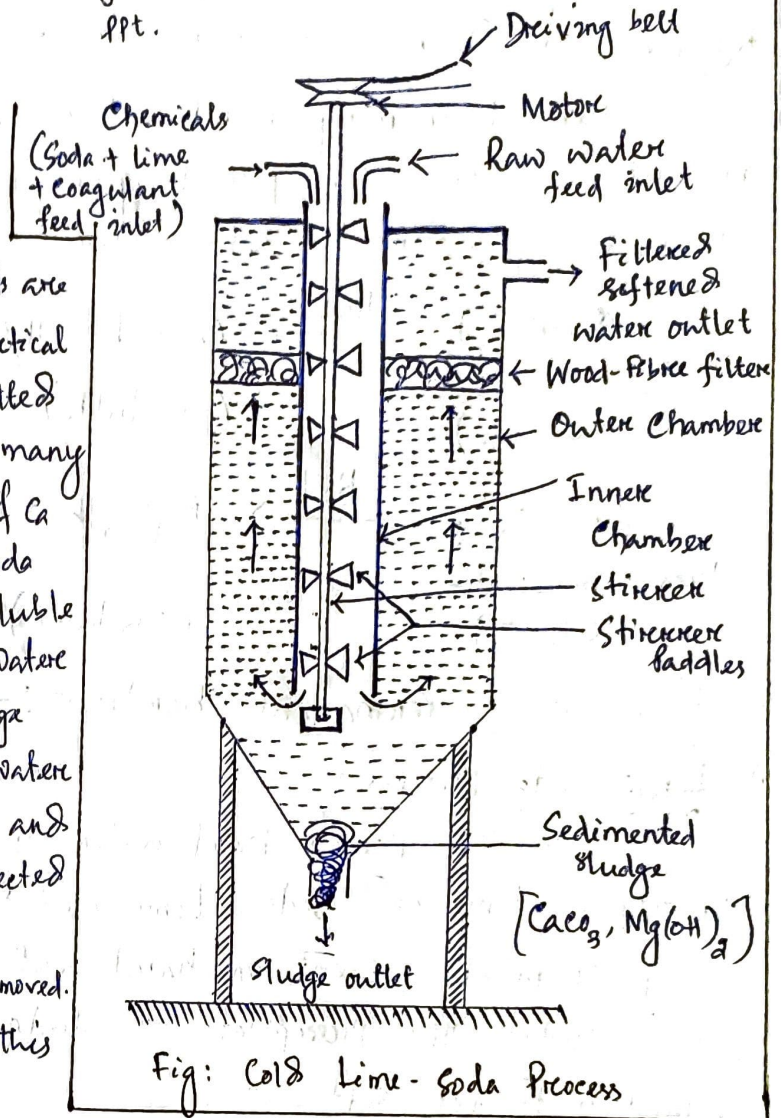 ppt.
Dreiving belt
Motore
Chemicals
(Soda + lime
+ coagulant
feed inlet)
Raw water
feed inlet
Filtered
softened
water outlet
Wood-fibre filter
Outer Chamber
Inner
Chamber
Stirrer
Stirrer
Paddles
Sedimented
sludge
[CaCO3, Mg(OH)2]
Sludge outlet
Fig: Cold Lime-Soda Process
are
many
of Ca
and
this